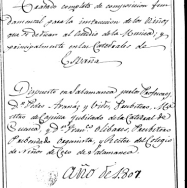 Tratado completo de composicion fun-
damental, para la instruccion de los Niños
que se dedican al estudio de la Musica, y
principalmente en las Catedrales de
España
Dispuesto en Salamanca por los Profesores
dn Pedro Aranaz y Vides, Presbitero, Ma-
estro de Capilla jubilado de la Catedral de
Cuenca, y dn Franco Olivares, Presbitero
Prebendado organista, y Rector del Colegio
de Niños de Coro de Salamanca
Año de 1807